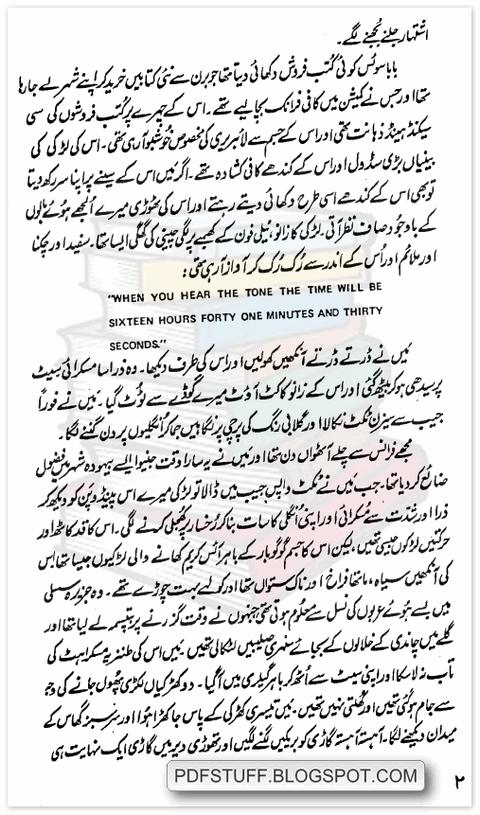 اشتہار جلنے بجھنے لگے۔
بابا سوئس کوئی کتب فروش دکھائی دیتا تھا جو برن سے نئی کتابیں خرید کر اپنے شہر لے جا رہا
تھا اور جس نے کمیشن میں کافی فرانک بچا لیے تھے۔ اس کے چہرے پر کتب فروشوں کی سی
سیکنڈ ہینڈ ذہانت تھی اور اس کے جسم سے لائبریری کی مخصوص خوشبو آ رہی تھی۔ اس کی لڑکی کی
پنڈلیاں بڑی سڈول اور اس کے کندھے کافی کشادہ تھے۔ اگر میں اس کے سینے پر اپنا سر رکھ دیتا
تو بھی اس کے کندھے اسی طرح دکھائی دیتے رہتے اور اس کی ٹھوڑی میرے الجھے ہوئے بالوں
کے باوجود صاف نظر آتی۔ لڑکی کا زانو، ٹیلی فون کے کھمبے پر لگی چینی کی گلّی ایسا تھا۔ سفید اور چکنا
اور ملائم اور اُس کے اندر سے رُک رُک کر آواز آ رہی تھی :
"WHEN YOU HEAR THE TONE THE TIME WILL BE
SIXTEEN HOURS FORTY ONE MINUTES AND THIRTY
SECONDS."
میں نے ڈرتے ڈرتے آنکھیں کھولیں اور اس کی طرف دیکھا۔ وہ ذرا سا مسکرائی، سیٹ
پر سیدھی ہو کر بیٹھ گئی اور اس کے زانو کا کٹ آؤٹ میرے گوڈے سے ٹوٹ گیا۔ میں نے فوراً
جیب سے سیزن ٹکٹ نکالا اور گلابی رنگ کی پرچی پر نگاہیں جما کر انگلیوں پر دن گننے لگا۔
مجھے فرانس سے چلے آٹھواں دن تھا اور میں نے یہ سارا وقت جنیوا ایسے بیہودہ شہر میں فضول
ضائع کر دیا تھا۔ جب میں نے ٹکٹ واپس جیب میں ڈالا تو لڑکی میرے اس پینڈوپن کو دیکھ کر
ذرا اور شدّت سے مسکرائی اور اپنی اُنگلی کا سات بنا کر رخسار پر کھجلی کرنے لگی۔ اس کا قد کاٹھ اور
حرکتیں لڑکوں جیسی تھیں لیکن اس کا جسم گوگو بار کے باہر آئس کریم کھانے والی لڑکیوں جیسا تھا اس
کی آنکھیں سیاہ، ماتھا فراخ اور ناک ستواں تھا اور کولہے بہت چوڑے تھے۔ وہ جزیرہ سسلی
میں بسے ہوئے عربوں کی نسل سے معلوم ہوتی تھی جنہوں نے وقت گزرنے پر بپتسمہ لے لیا تھا اور
گلے میں چاندی کے خلالوں کے بجائے سنہری صلیبیں لٹکا لی تھیں۔ میں اس کی طنزیہ مسکراہٹ کی
تاب نہ لا سکا اور اپنی سیٹ سے اُٹھ کر باہر گیلری میں آ گیا۔ دو کھڑکیاں لکڑی پھول جانے کی وجہ
سے جام ہو گئی تھیں اور کھلتی نہیں تھیں۔ میں تیسری کھڑکی کے پاس جا کھڑا ہوا اور سرسبز گھاس کے
میدان دیکھنے لگا۔ آہستہ آہستہ گاڑی کو بریکیں لگنے لگیں اور تھوڑی دیر میں گاڑی ایک نہایت ہی
PDFSTUFF.BLOGSPOT.COM
۲